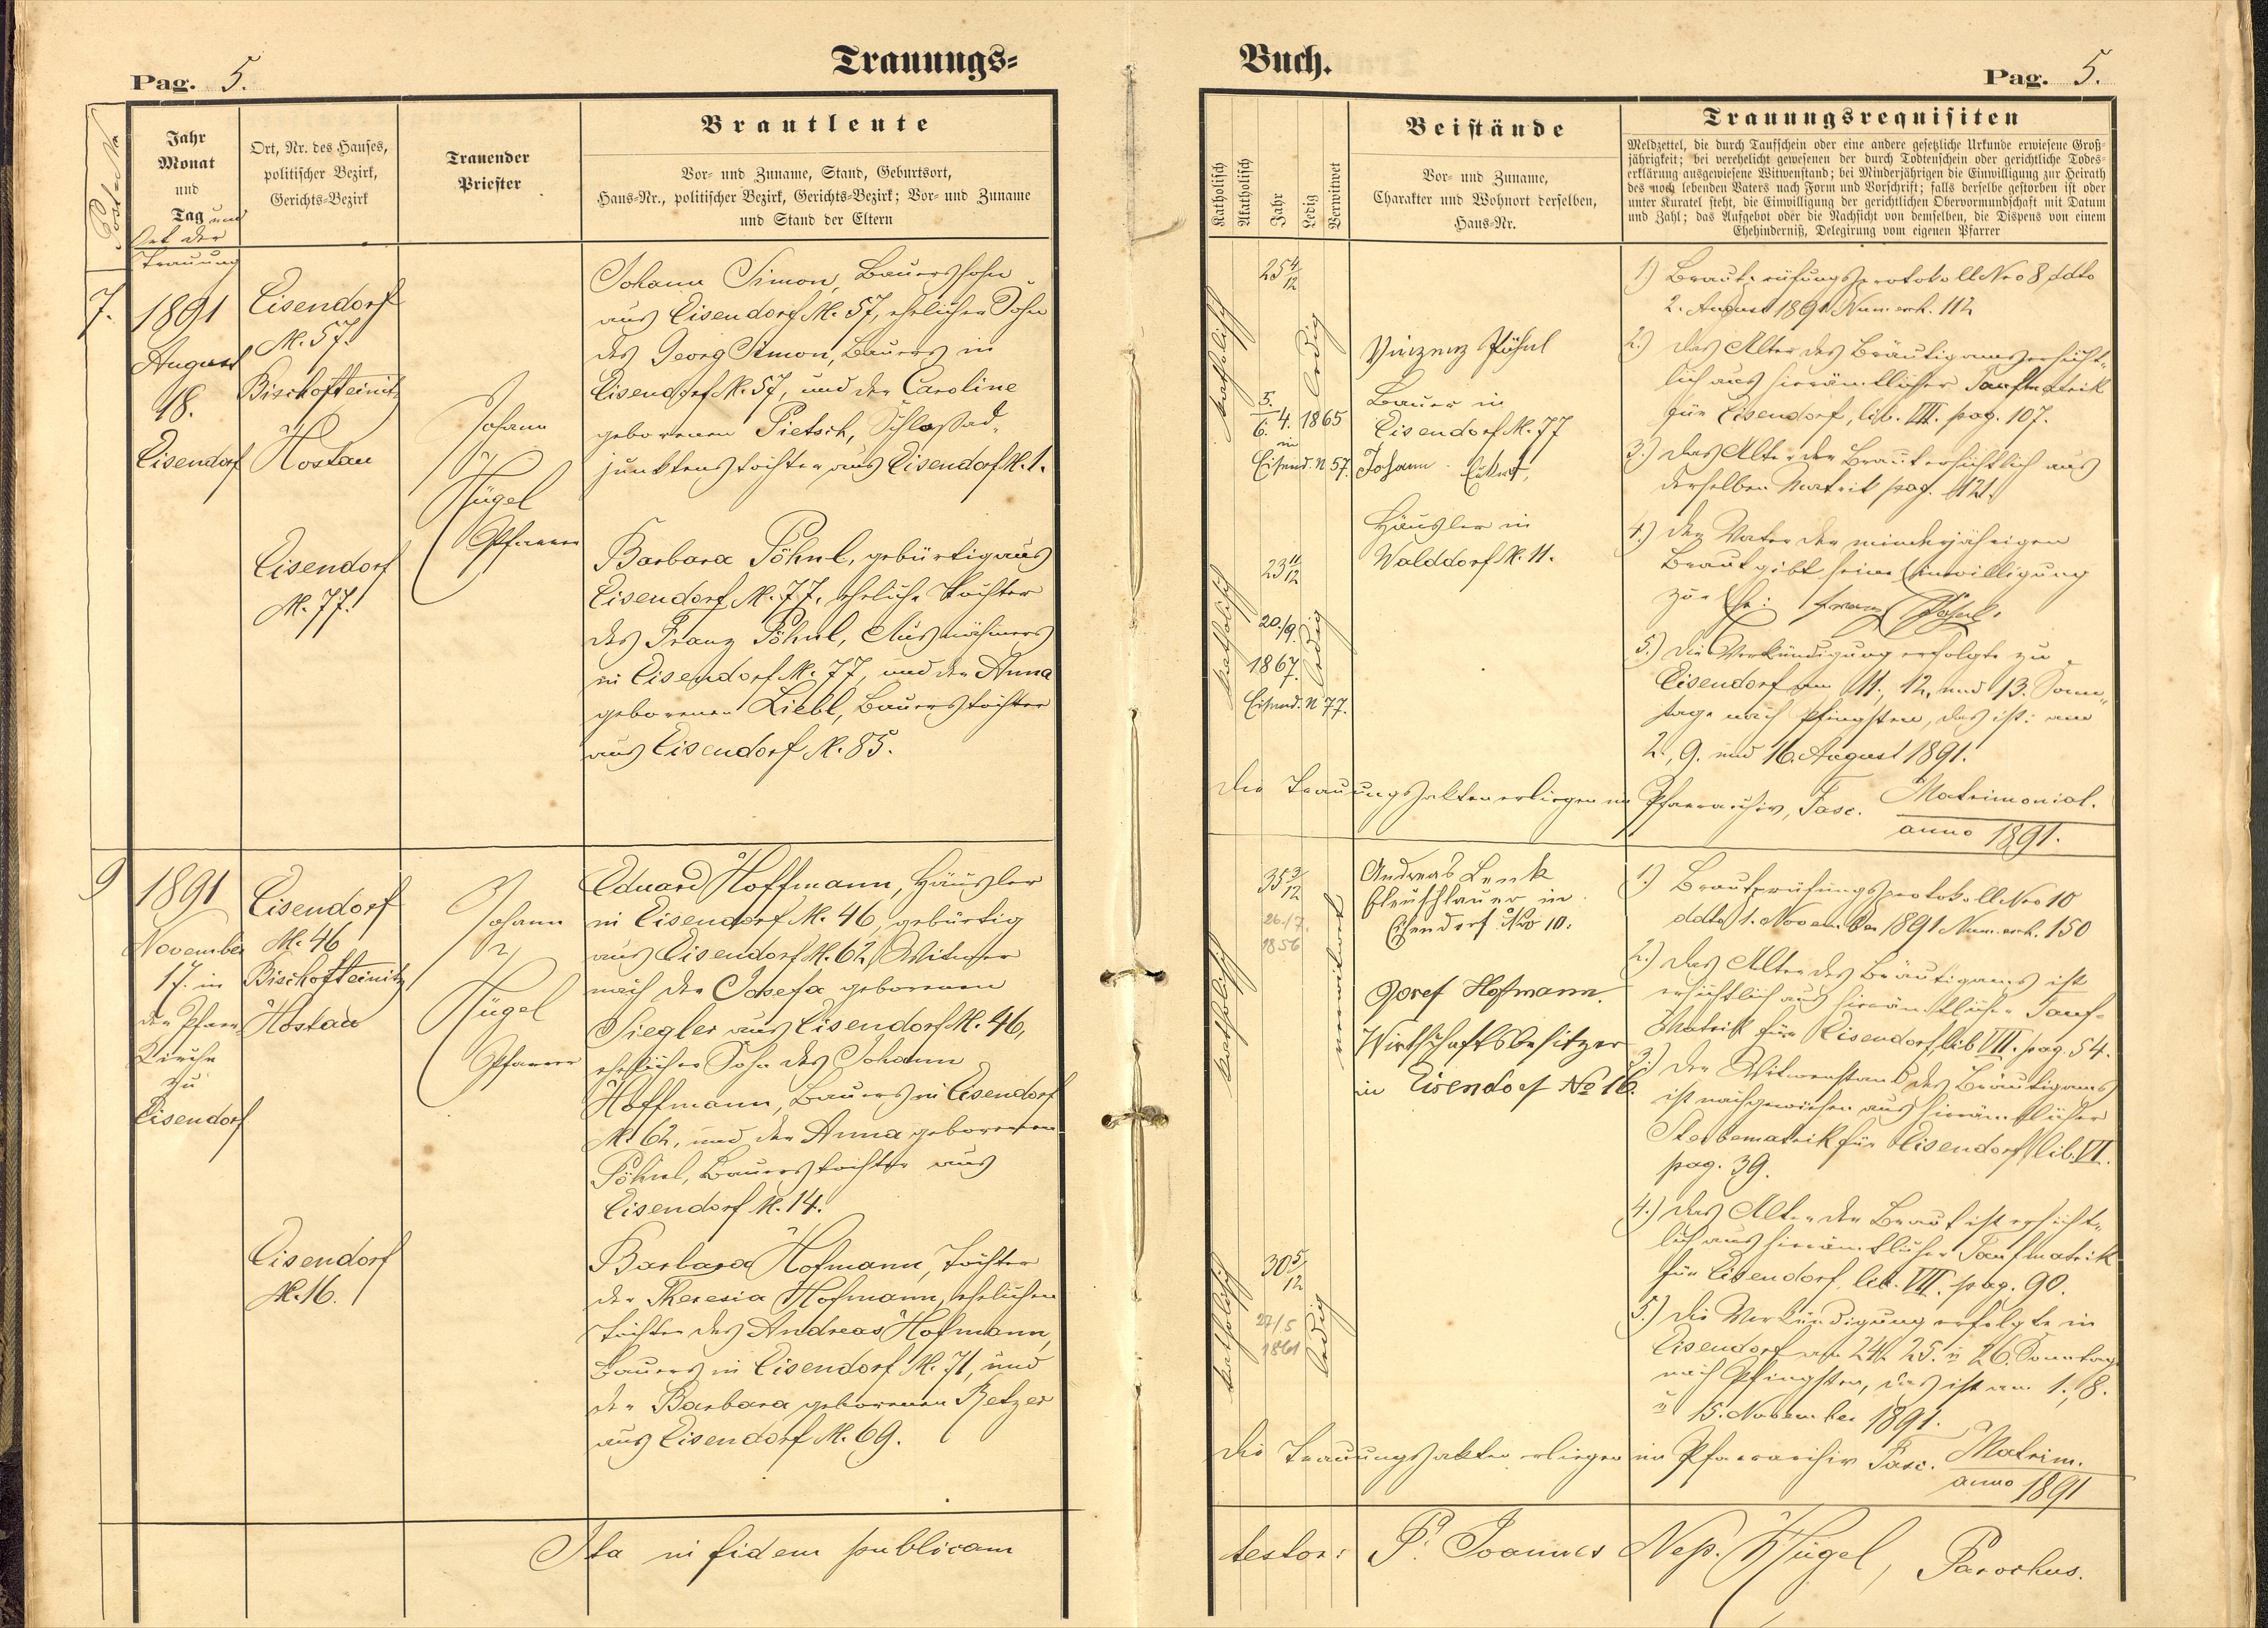 Trauungs=
Pag. 5.
Post-No
Jahr
Monat
und
Tag und
Ort der
Trauung
Ort, Nr. des Hauses,
politischer Bezirk,
Gerichts-Bezirk
Trauender
Priester
Brautleute
Vor- und Zuname, Stand, Geburtsort,
Haus-Nr., politischer Bezirk, Gerichts-Bezirk; Vor- und Zuname
und Stand der Eltern
7.
1891
August
18.
Eisendorf
Eisendorf
N. 57.
Bischofteinitz
Hostau
Eisendorf
N. 77.
Johann
N.
Hügel
Pfarrer
Johann Simon, Bauerssohn
aus Eisendorf N. 57, ehelicher Sohn
des Georg Simon, Bauers in
Eisendorf N. 57, und der Caroline
geborenen Pietsch, Schloßad=
junktenstochter aus Eisendorf N. 1.
Barbara Pöhnl, gebürtig aus
Eisendorf N. 77, eheliche Tochter
des Franz Pöhnl, Ausnähmers
in Eisendorf N. 77, und der Anna
geborenen Liebl, Bauerstochter
aus Eisendorf N. 85.
9
1891
November
17. in
der Pfarr=
Kirche
zu
Eisendorf
Eisendorf
N. 46
Bischofteinitz
Hostau
Eisendorf
N. 16.
Johann
N.
Hügel
Pfarrer
Eduard Hoffmann, Häusler
in Eisendorf N. 46, gebürtig
aus Eisendorf N. 62, Witwer
nach der Josefa geborenen
Siegler aus Eisendorf N. 46,
ehelicher Sohn des Johann
Hoffmann, Bauers in Eisendorf
N. 62, und der Anna geborenen
Pöhnl, Bauerstochter aus
Eisendorf N. 14.
Barbara Hofmann, Tochter
der Theresia Hofmann, ehelichen
Tochter des Andreas Hofmann,
Bauers in Eisendorf N. 71, und
der Barbara geborenen Betzer
aus Eisendorf N. 69.
Ita in fidem publicam
Buch.
Pag. 5.
Katholisch
Akatholisch
Jahr
Ledig
Verwitwet
Beistände
Vor- und Zuname,
Charakter und Wohnort derselben,
Haus-Nr.
Trauungsrequisiten
Meldzettel, die durch Taufschein oder eine andere gesetzliche Urkunde erwiesene Groß-
jährigkeit; bei verehelicht gewesenen der durch Todtenschein oder gerichtliche Todes-
erklärung ausgewiesene Witwenstand; bei Minderjährigen die Einwilligung zur Heirath
des noch lebenden Vaters nach Form und Vorschrift; falls derselbe gestorben ist oder
unter Kuratel steht, die Einwilligung der gerichtlichen Obervormundschaft mit Datum
und Zahl; das Aufgebot oder die Nachsicht von demselben, die Dispens von einem
Ehehinderniß, Delegirung vom eigenen Pfarrer
katholisch
25 4/12
ledig
5.
6. 4. 1865
in
Eisend. N 57.
katholisch
23 11/12
20./9.
1867.
ledig
Eisend. N 77.
Vinzenz Pöhnl
Bauer in
Eisendorf N. 77
Johann
Häusler in
Walddorf N. 11.
1.) Brautprüfungsprotokoll Nro 8 ddto
2. August 1891 Num. exh. 112
2.) Das Alter des Bräutigams ersicht=
lich aus hierämtlicher Taufmatrik
für Eisendorf, lib. VII. pag. 107.
3.) Das Alter der Braut ersichtlich aus
derselben Matrik pag. 121.
4.) Der Vater der minderjährigen
Braut gibt seine Einwilligung
zur Ehe: Franz Pöhnl.
5.) Die Verkündigung erfolgte zu
Eisendorf am 11., 12. und 13. Sonn=
tage nach Pfingsten, das ist: am
2., 9. und 16. August 1891.
Die Trauungsakten erliegen im Pfarrarchiv, Fasc. Matrimonial.
anno 1891.
katholisch
35 3/12
26./7.
1856
verwitwet
katholisch
30 5/12
27/5
1861
ledig
Andreas Lenk
in
Eisendorf Nro 10.
Josef Hofmann.
Wirthschaftsbesitzer
in Eisendorf No 16.
1.) Brautprüfungsprotokoll Nro 10
ddto 1. November 1891 Num. exh. 150
2.) Das Alter des Bräutigams ist
ersichtlich aus hierämtlicher Tauf=
Matrik für Eisendorf, lib VII. pag. 54.
3.) Der Witwenstand des Bräutigams
ist nachgewiesen aus hierämtlicher
Sterbematrik für Eisendorf lib. VI.
pag. 39.
4.) Das Alter der Braut ist ersicht=
lich aus hierämtlicher Taufmatrik
für Eisendorf, lib. VII. pag. 90.
5.) Die Verkündigung erfolgte in
Eisendorf am 24. 25. u 26. Sonntag
nach Pfingsten, das ist am 1., 8.
u 15. November 1891.
Die Trauungsakten erliegen im Pfarrarchiv Fasc. Matrim.
anno 1891
testor: P. Joannes Nep. Hügel, Parochus.